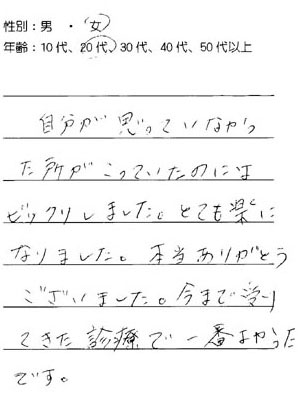 性別：男　・　女
年齢：10代、20代、30代、40代、50代以上
自分が思っていなかっ
た所がこっていたのには
ビックリしました。とても楽に
なりました。本当ありがとう
ございました。今まで受け
てきた診療で一番よかった
です。